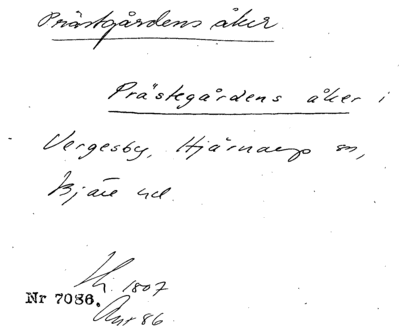 Prästgårdens åker.
Prästegårdens åker i
Vergesby, Hjärnarp sn,
Bjäre hd.
1807
Nr 7086.
86